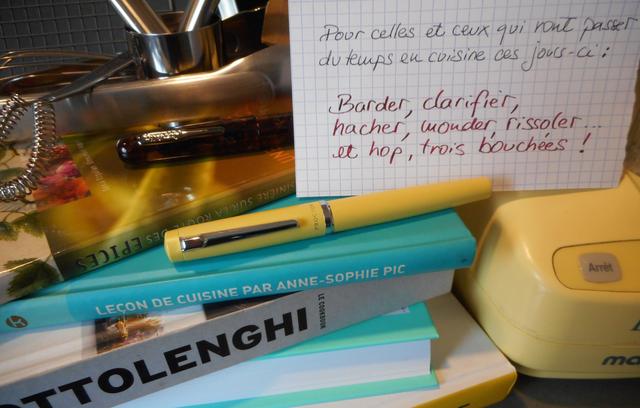 Pour celles et ceux qui vont passer
du temps en cuisine ces jours-ci :
Barder, clarifier,
hacher, monder, rissoler...
et hop, trois bouchées !
SINIÈRE SUR LA ROUTE DES EPICES
LEÇON DE CUISINE PAR ANNE-SOPHIE PIC
OTTOLENGHI
LE COOKBOOK
Arrêt